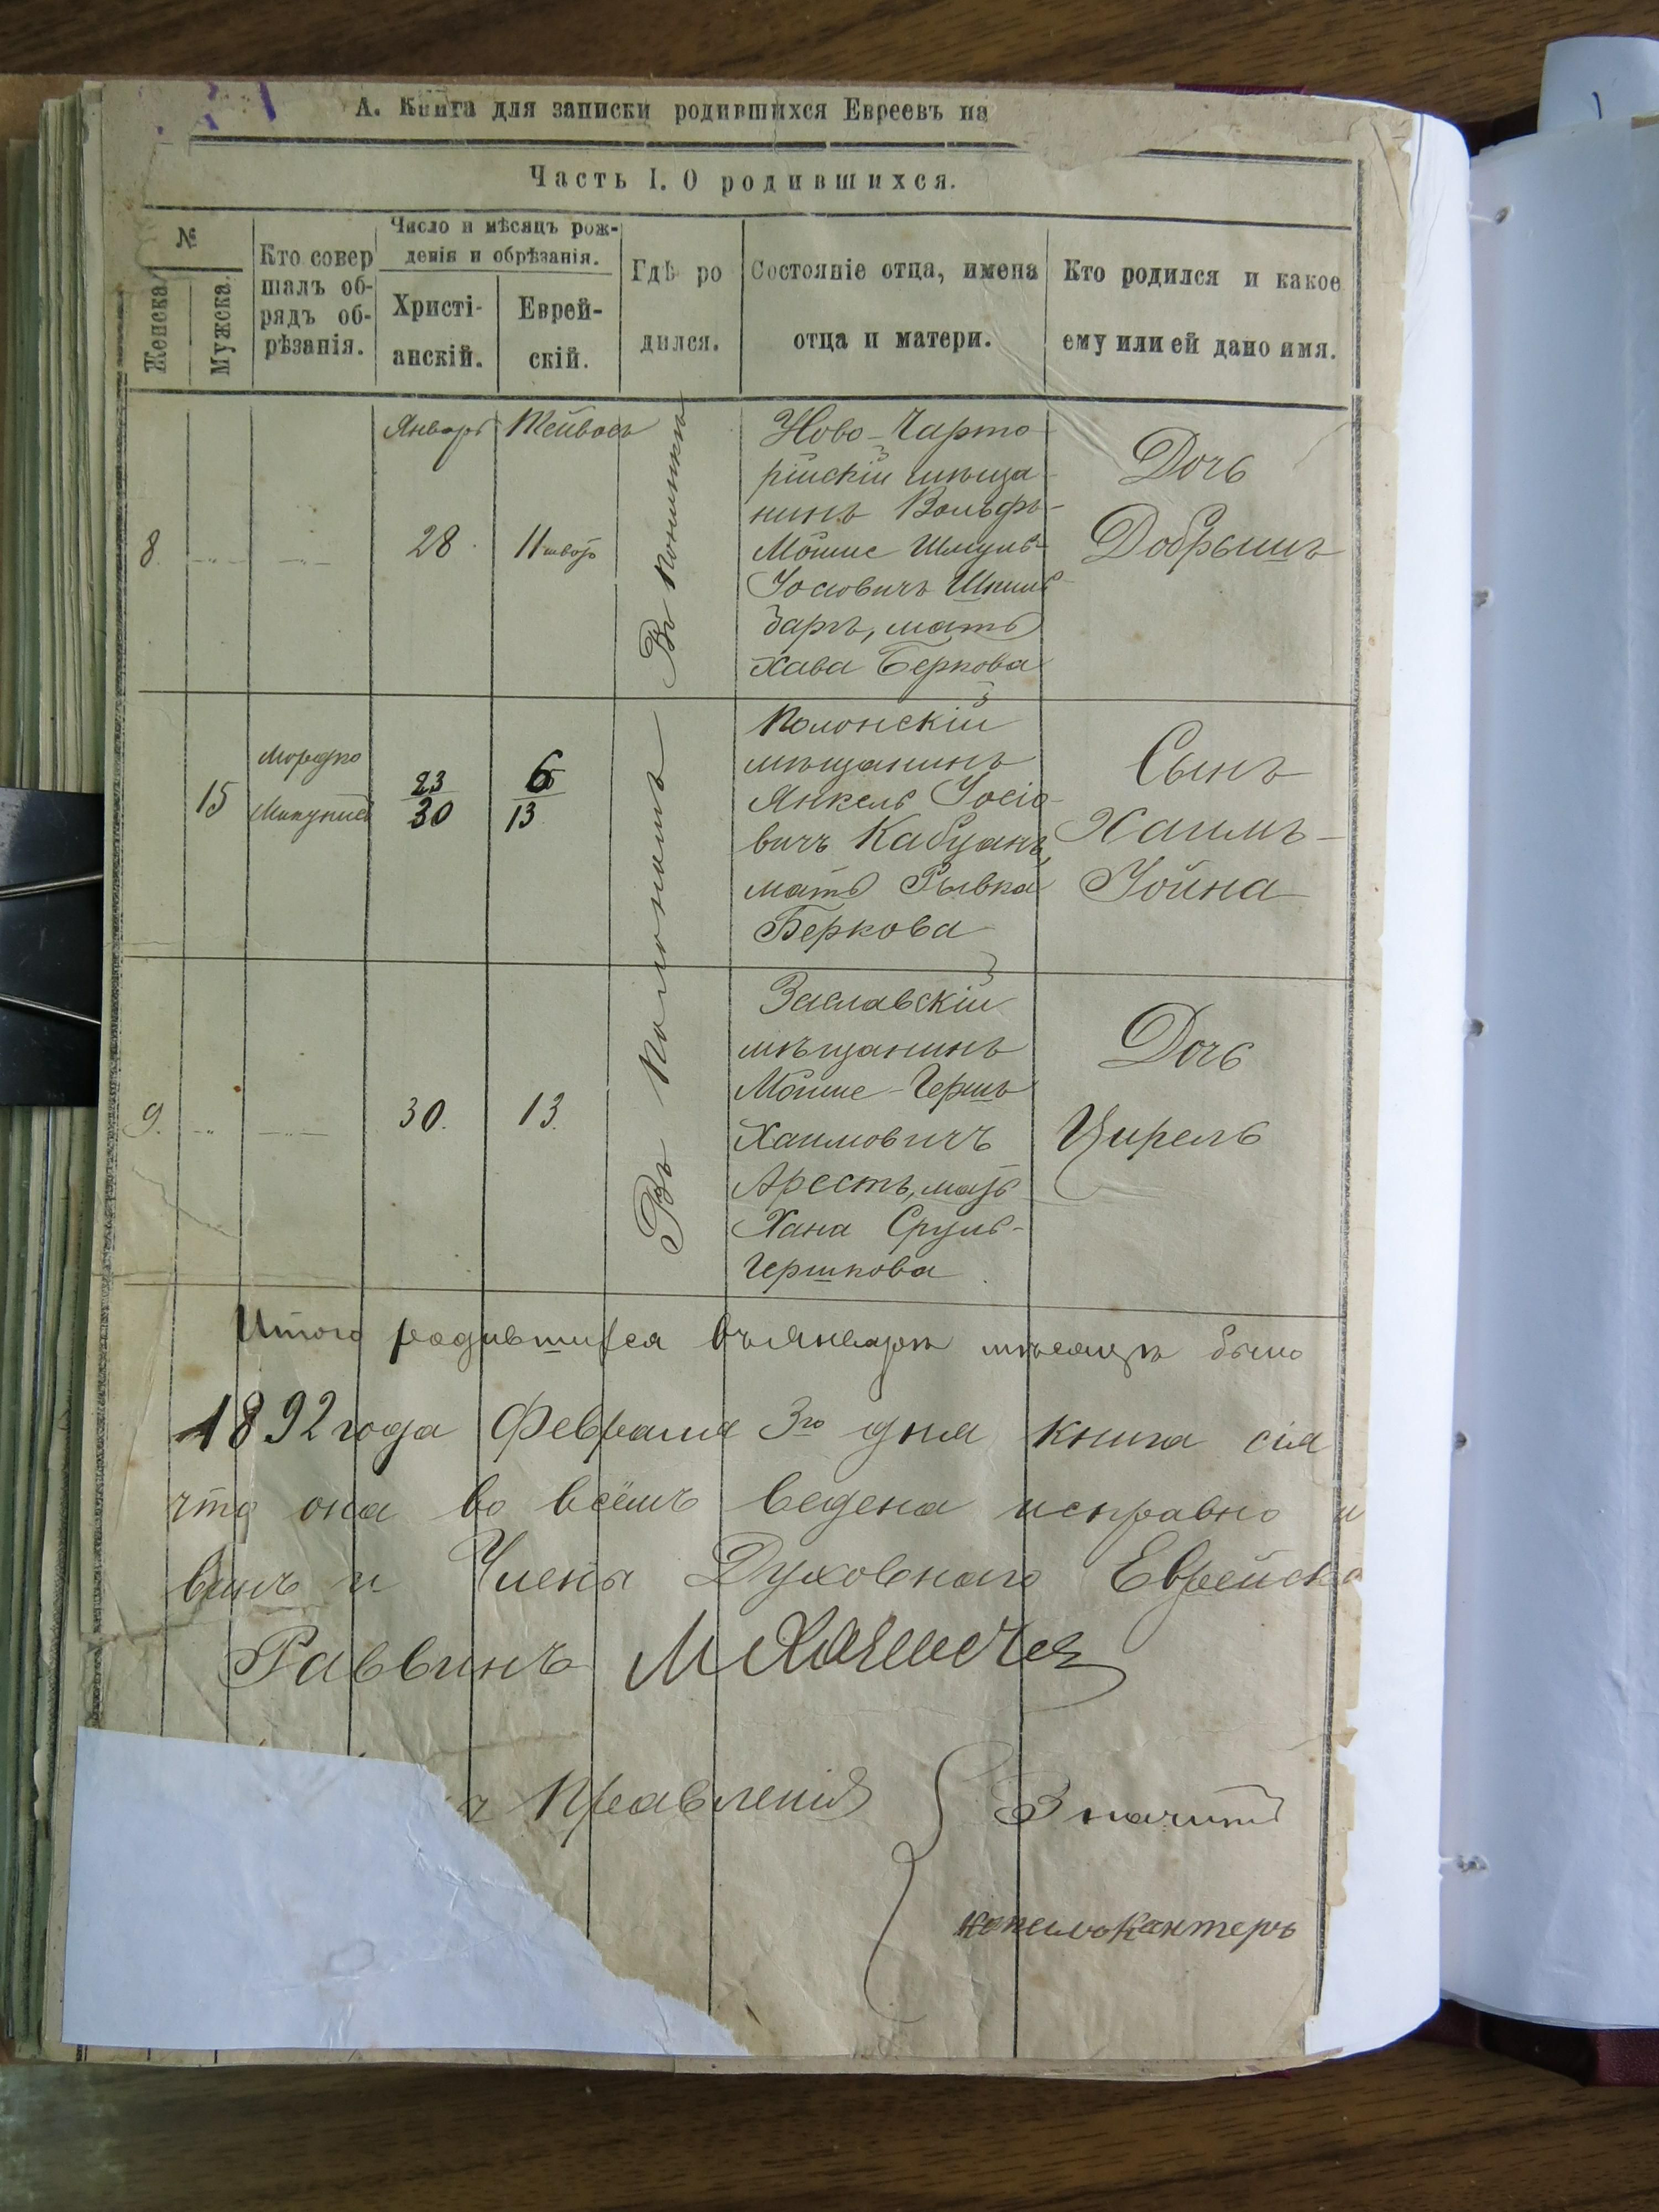 А. Книга для записки родившихся Евреевъ на
Часть I. О родившихся.
№
Женска
Мужска.
Кто совер
шалъ об-
рядъ об-
рѣзанія.
Число и мѣсяцъ рож-
денія и обрѣзанія.
Христі-
анскій.
Еврей-
скій.
Гдѣ ро
дился.
Состояніе отца, имена
отца и матери.
Кто родился и какое
ему или ей дано имя.
Январь
8.
28
11
Въ
Ново-Чарто
рійскій мѣща-
нинъ Вольфъ-
Мойше Шмуль-
Іосіовичъ
барг, мать
Хава Беркова
Дочь
Добрышъ
15
Мордко
23
30
6
13
Полонскій
мѣщанинъ
Янкель Іосіо-
вичъ Кабуанъ,
мать Рывка
Беркова
Сынъ
Хаимъ-
Іойна
9.
30.
13.
Въ Полономъ
Заславскій
мѣщанинъ
Мойше-Гершъ
Хаимовичъ
Арестъ, мать
Хана Сруль-
Гершкова
Дочь
Цирель
Итого родившихся въ Январѣ мѣсяцѣ было
1892 года Февраля 3го дня книга сія
что она во всёмъ ведена исправно и
винъ и Члена Духовнаго Еврейска
Раввинъ
Правленія
Канторъ